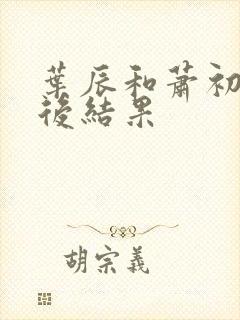 葉辰和蕭初
後結果
胡宗義